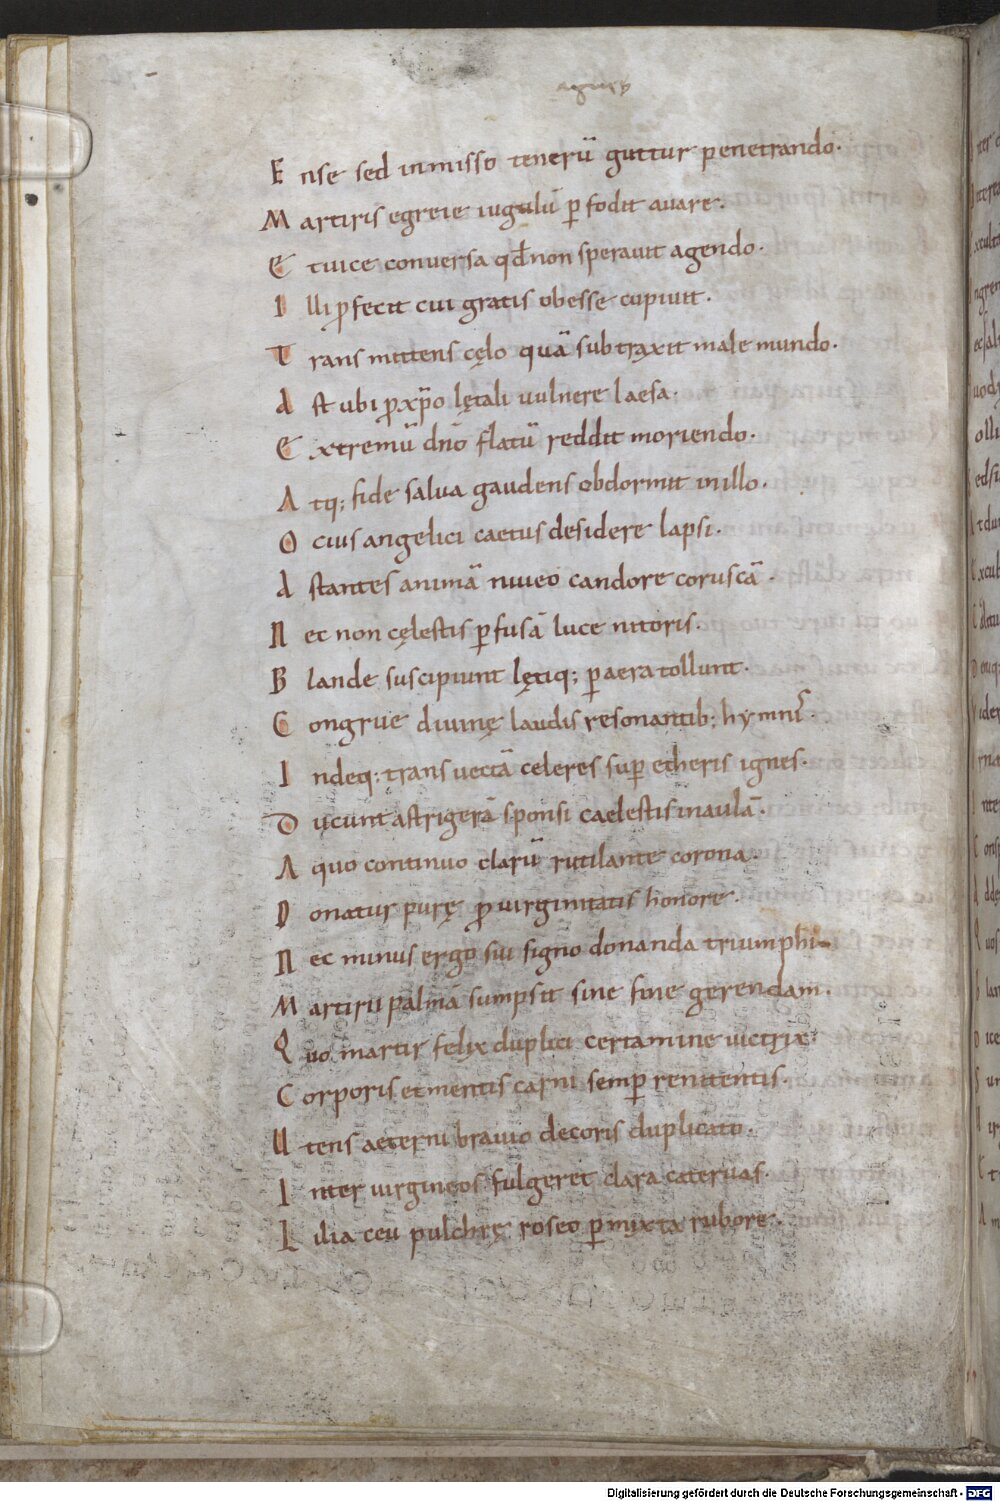 agnes
Ense sed inmisso tenerū guttur penetrando·
Martiris egreie iugulū ꝑfodit auare·
Et uice conuersa qđ non sperauit agendo·
Illi ꝓfecit cui gratis obesse cupiuit·
Trans mittens cęlo quā subtraxit male mundo·
Ast ubi ꝓ xp̄o lętali uulnere laesa·
Extremū dn̄o flatū reddit moriendo·
Atq; fide salua gaudens obdormit in illo·
Ocius angelici caetus desidere lapsi·
Astantes animā niueo candore coruscā·
Nec non cęlestis ꝑfusā luce nitoris·
Blande suscipiunt lętiq; ꝑ aera tollunt·
Congrue diuinę laudis resonantib; hymnis·
Indeq; trans uectā celeres suꝑ etheris ignes·
Ducunt astrigerā sponsi caelestis in aulā·
A quo continuo clarū rutilante corona·
Donatur purę ꝓ uirginitatis honore·
Nec minus ergo sui signo donanda triumphi
Martirii palmā sumpsit sine fine gerendam·
Quo martir felix duplici certamine uictrix·
Corporis et mentis carni semꝑ renitentis·
Utens aeterni brauio decoris duplicato·
Inter uirgineos fulgeret clara cateruas·
Lilia ceu pulchrę roseo ꝑmixta rubore·
Digitalisierung gefördert durch die Deutsche Forschungsgemeinschaft - DFG